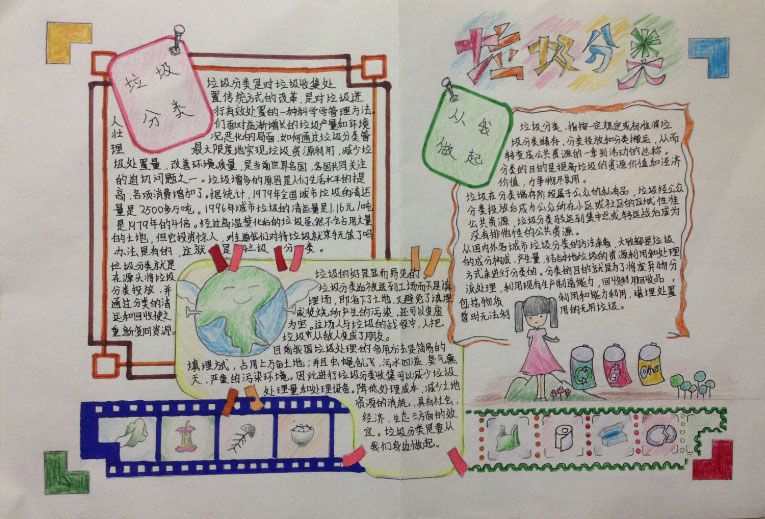 垃圾分类
垃圾
分类
垃圾分类是对垃圾收集处
置传统方式的改革,是对垃圾进
行有效处置的一种科学管理方法。
人们面对日益增长的垃圾产量和环境
状况恶化的局面,如何通过垃圾分类管
理最大限度地实现垃圾资源利用,减少垃
圾处置量,改善环境质量,是当前世界各国共同关注
的迫切问题之一。垃圾增多的原因是人们生活水平的提
高,各项消费增加了。据统计,1979年全国城市垃圾的清运
量是2500多万吨,1996年城市垃圾的清运量是1.16亿吨
是1979年的4倍。经过高温焚化后的垃圾虽然不会占用大量
的土地,但它投资惊人
办法是有的,这就是垃圾分类。
垃圾分类就是
在源头将垃圾
分类投放,并
通过分类的清
运和回收使之
重新变回资源。
从我
做起
垃圾分类,指按一定规定或标准将垃
圾分类储存、分类投放和分类搬运,从而
转变成公共资源的一系列活动的总称。
分类的目的是提高垃圾的资源价值和经济
价值,力争物尽其用。
垃圾在分类储存阶段属于公众的私有品,垃圾经公众
分类投放后成为公众所在小区或社区的区域性准
公共资源,垃圾分类驳运到集中点或转运站后成为
没有排他性的公共资源。
从国内外各城市垃圾分类的方法来看,大致都是根据垃圾
的成分构成、产生量,结合本地垃圾的资源利用和处理
方式来进行分类的。分类的目的就是为了将废弃物分
流处理,利用现有生产制造能力,回收利用回收品,
包括物质利用和能力利用,填埋处置
暂时无法利用的无用垃圾。
垃圾分类的好处是显而易见的。
垃圾分类后被送到工厂而不是填
埋场,既省下了土地,又避免了填埋
或焚烧所产生的污染,还可以变废
为宝。这场人与垃圾的战役中,人把
垃圾从敌人变成了朋友。
目前我国垃圾处理的多用方法是简易的
填埋方式,占用上万亩土地;并且虫蝇乱飞,污水四溢,臭气熏
天,严重的污染环境。因此进行垃圾分类收集可以减少垃圾
处理量和处理设备,降低处理成本,减少土地
资源的消耗,具有社会、
经济、生态三方面的效
益。垃圾分类是要从
我们身边做起。
Other